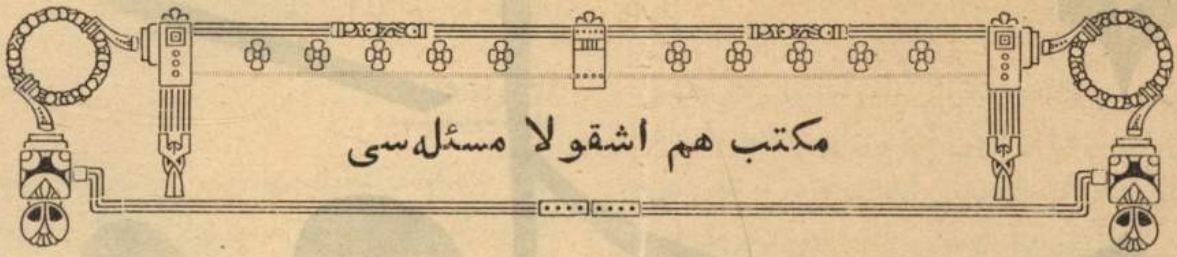 مکتب هم اشقولا مسئله‌سی